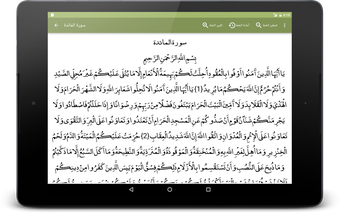 سورة المائدة
سورة المائدة
بِسْمِ اللَّهِ الرَّحْمَنِ الرَّحِيمِ
يَا أَيُّهَا الَّذِينَ آمَنُوا أَوْفُوا بِالْعُقُودِ أُحِلَّتْ لَكُمْ بَهِيمَةُ الْأَنْعَامِ إِلَّا مَا يُتْلَى عَلَيْكُمْ غَيْرَ مُحِلِّي الصَّيْدِ
وَأَنْتُمْ حُرُمٌ إِنَّ اللَّهَ يَحْكُمُ مَا يُرِيدُ (1) يَا أَيُّهَا الَّذِينَ آمَنُوا لَا تُحِلُّوا شَعَائِرَ اللَّهِ وَلَا الشَّهْرَ الْحَرَامَ وَلَا
الْهَدْيَ وَلَا الْقَلَائِدَ وَلَا آمِّينَ الْبَيْتَ الْحَرَامَ يَبْتَغُونَ فَضْلًا مِنْ رَبِّهِمْ وَرِضْوَانًا وَإِذَا حَلَلْتُمْ فَاصْطَادُوا وَلَا
يَجْرِمَنَّكُمْ شَنَآنُ قَوْمٍ أَنْ صَدُّوكُمْ عَنِ الْمَسْجِدِ الْحَرَامِ أَنْ تَعْتَدُوا وَتَعَاوَنُوا عَلَى الْبِرِّ وَالتَّقْوَى وَلَا
تَعَاوَنُوا عَلَى الْإِثْمِ وَالْعُدْوَانِ وَاتَّقُوا اللَّهَ إِنَّ اللَّهَ شَدِيدُ الْعِقَابِ (2) حُرِّمَتْ عَلَيْكُمُ الْمَيْتَةُ وَالدَّمُ وَلَحْمُ
الْخِنْزِيرِ وَمَا أُهِلَّ لِغَيْرِ اللَّهِ بِهِ وَالْمُنْخَنِقَةُ وَالْمَوْقُوذَةُ وَالْمُتَرَدِّيَةُ وَالنَّطِيحَةُ وَمَا أَكَلَ السَّبُعُ إِلَّا مَا ذَكَّيْتُمْ
وَمَا ذُبِحَ عَلَى النُّصُبِ وَأَنْ تَسْتَقْسِمُوا بِالْأَزْلَامِ ذَلِكُمْ فِسْقٌ الْيَوْمَ يَئِسَ الَّذِينَ كَفَرُوا مِنْ دِينِكُمْ